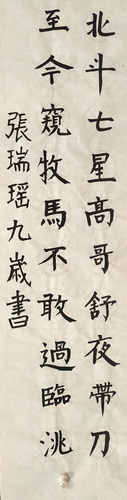 北斗七星高哥舒夜帶刀
至今窺牧馬不敢過臨洮
張瑞瑶九歲書